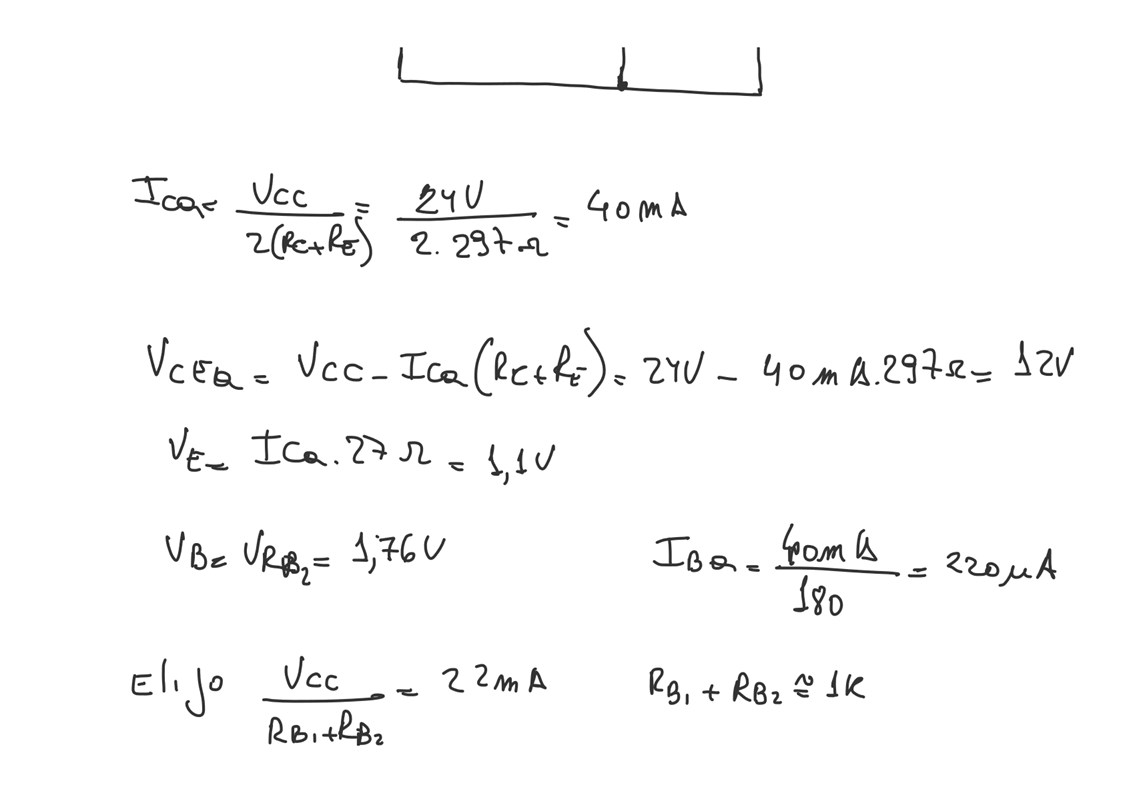 ICQ = VCC / 2(RC+RE) = 24V / 2.297Ω = 40mA
VCEQ = VCC - ICQ(RC+RE) = 24V - 40mA.297Ω = 12V
VE = ICQ.27Ω = 1,1V
VB = VRB2 = 1,76V IBQ = 40mA / 180 = 220μA
Elijo VCC / RB1+RB2 = 22mA RB1 + RB2 ≅ 1K